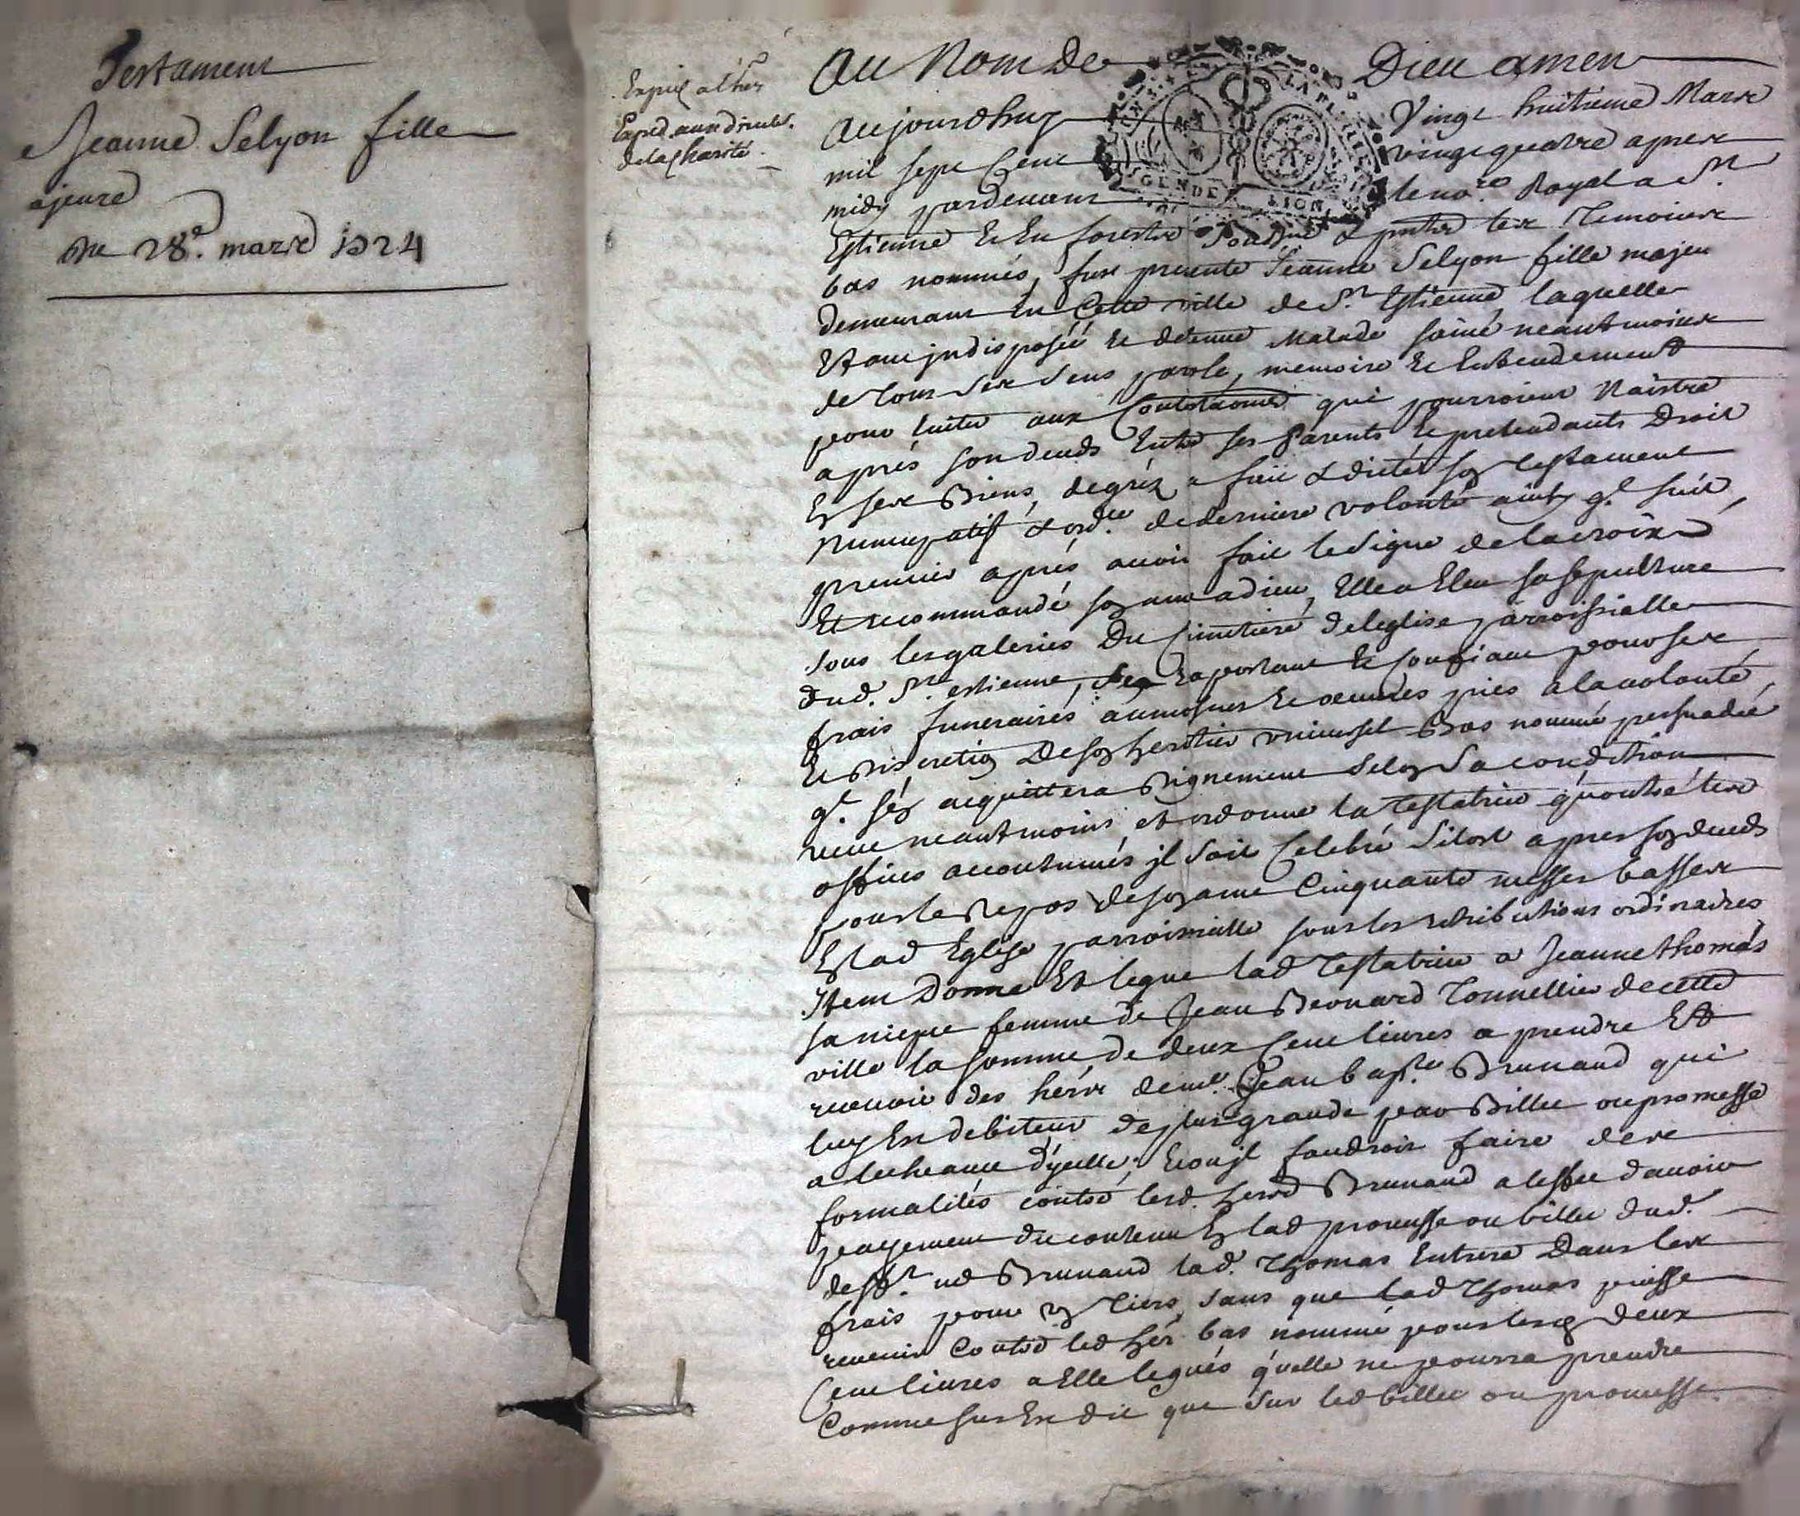 Testament
Jeanne Selyon fille
ajeure
Du 28e. mars 1724
Expié a l'her
Exped. aux direct.
de la charité
Au Nom De Dieu amen
Aujourdhuy Vingt huitieme Mars
mil sept Cent vingt quatre apres
midy pardevant le nore Royal a St
Estienne En forestz & les Temoins
bas nommés, fut presente Jeanne Selyon fille majeu
demeurant En Cette ville de St. Estienne, laquelle
Etant indisposée Et detenue Malade saine neantmoins
de Tous Ses Sens parole, memoire Et Entendement
pour Eviter aux qui pourroient Naistre
aprés son deceds Entre ses Parents Et pretendants Droit
En ses Biens, de gréz a fait & dicté son Testament
Nuncupatif & ordce de derniere volonté ainsy ql. suit
premier aprés avoir fait le Signe de la croix
Et recommandé son ame a dieu, Elle a Eleu sa sepulture
sous les galeries Du Cimetiere de l'eglise parroissialle
dud. St. estienne, S'en raportant Et confiant pour ses
frais funeraires aumosnes Et oeuvres pies a la volonté
Et Discretion De son heritier universel Bas nommé persuadée
ql. s'en acquittera Dignement Selon Sa condition
veut neantmoins et ordonne la Testatrice qu'outre les
offices accoutumés il Soit Celebré Sitost apres son deceds
pour le Repos de son ame Cinquante messes basses
En lad Eglise parroissialle sous les retributions ordinaires
Item Donne Et legue lad Testatrice a Jeanne thomas
sa niepce femme de Jean Beonard Tonnellier de cette
ville la somme de deux Cent livres a prendre Et
recevoir des hers de me. Jean bapte. Brunand qui
luy Est debiteur de plus grande par Billet ou promesse
a l'echeance d'ycelle, Et ou il faudroit faire des
formalités contre lesd. hers Brunand a l'effet d'avoir
payement du contenu En lad promesse ou billet dud.
deff. me Brunand lad. Thomas Entrera Dans les
frais pour un Tiers, Sans que Lad Thomas puisse
revenir Contre led her. bas nommé pour lesd deux
Cent livres a Elle legués qu'elle ne pourra prendre
Comme sus Est dit que Sur led billet ou promesse.